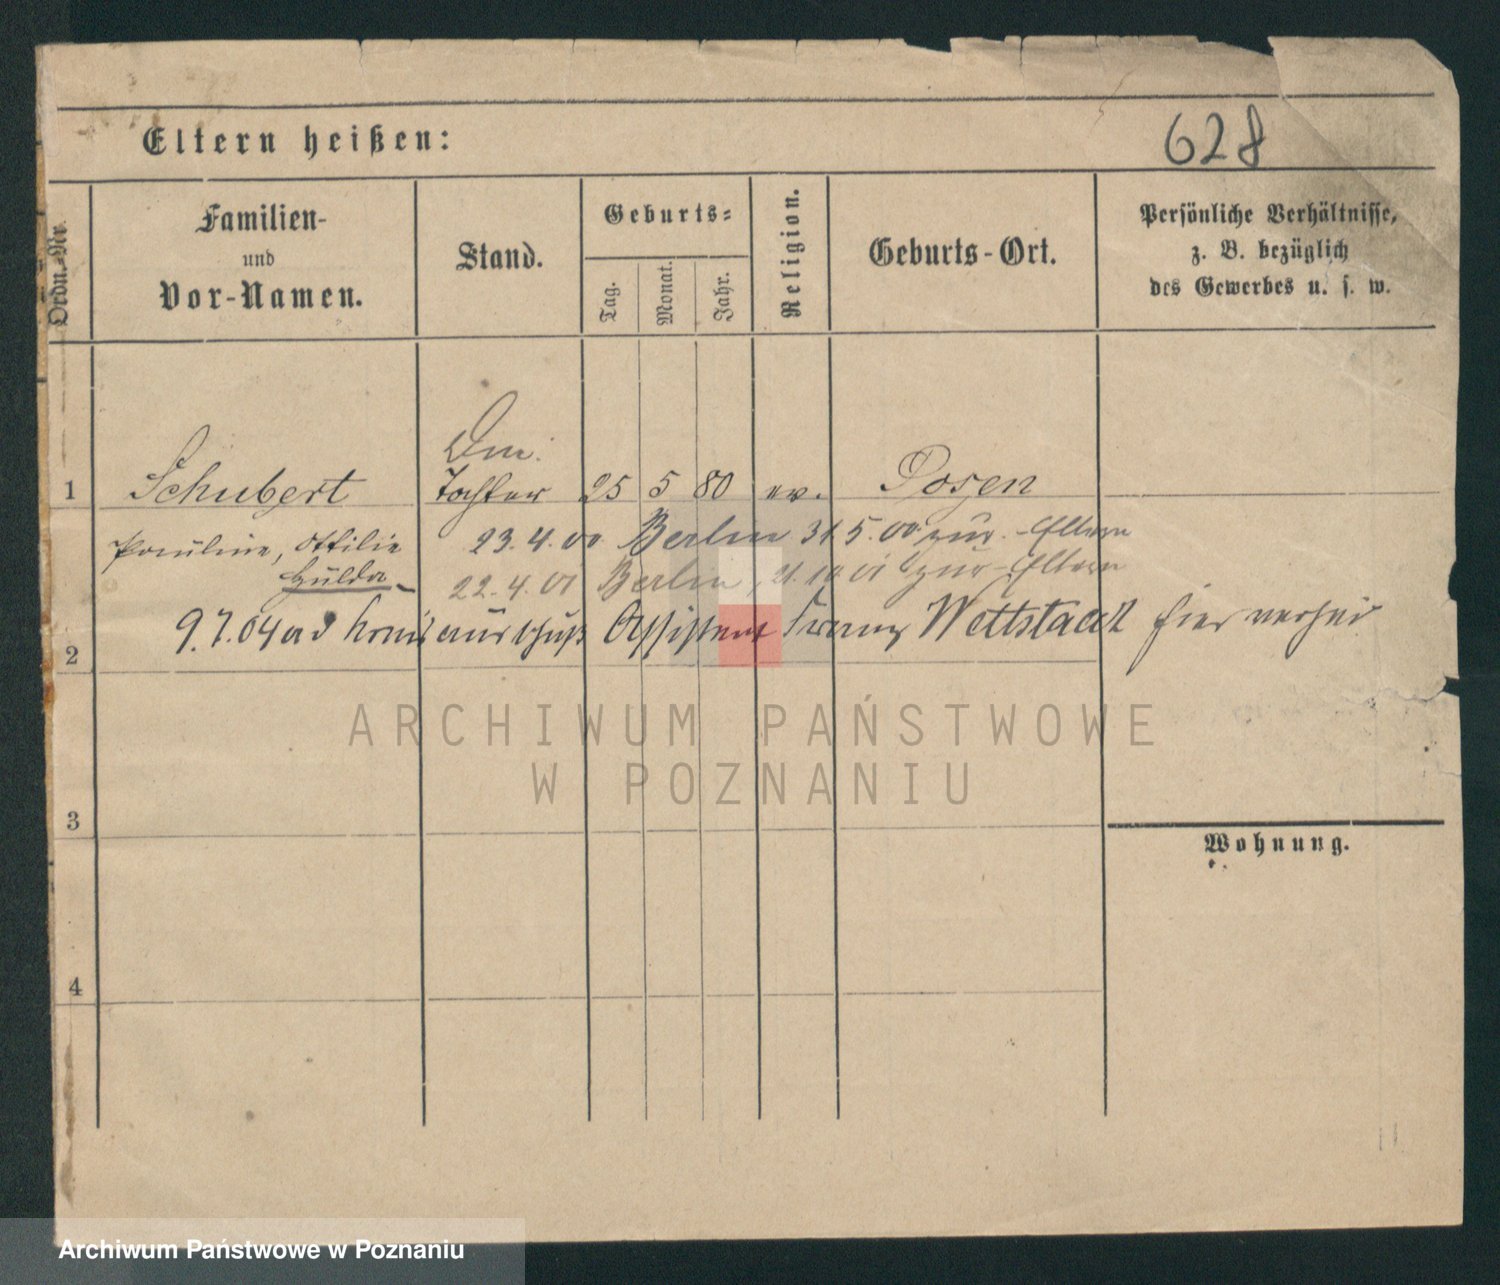 Eltern heißen:
628
Ordn.-Nr.
Familien-
und
Vor-Namen.
Stand.
Geburts-
Tag.
Monat.
Jahr.
Religion.
Geburts-Ort.
Persönliche Verhältnisse,
z. B. bezüglich
des Gewerbes u. s. w.
1 Schubert Tochter 25 5 80 ev. Posen
Pauline, Ottilie 23.4.00 Berlin 31.5.00 zur. Eltern
Hulda 22.4.01 Berlin, 21.10.01 zur. Eltern
2 9.7.04 Assistent Franz Wettstaedt hier verhei
3
Wohnung.
4
ARCHIWUM PAŃSTWOWE
W POZNANIU
Archiwum Państwowe w Poznaniu